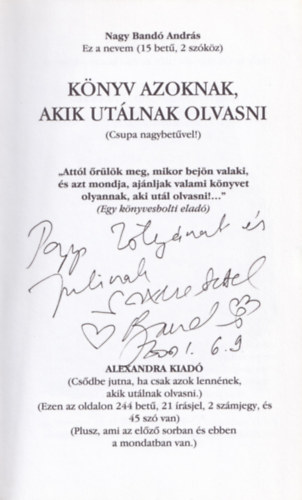 Nagy Bandó András
Ez a nevem (15 betű, 2 szóköz)
KÖNYV AZOKNAK,
AKIK UTÁLNAK OLVASNI
(Csupa nagybetűvel!)
„Attól őrülök meg, mikor bejön valaki,
és azt mondja, ajánljak valami könyvet
olyannak, aki utál olvasni!…”
(Egy könyvesbolti eladó)
Papp Zolyának és
Julinak
Szeretettel
Bandó
2001. 6. 9
ALEXANDRA KIADÓ
(Csődbe jutna, ha csak azok lennének,
akik utálnak olvasni.)
(Ezen az oldalon 244 betű, 21 írásjel, 2 számjegy, és
45 szó van)
(Plusz, ami az előző sorban és ebben
a mondatban van.)